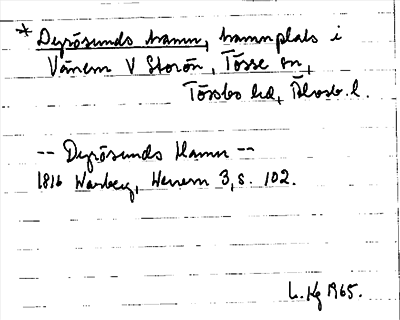 * Dyrösunds hamn, hamnplats i
Vänern V Storön, Tösse sn,
Tössbo hd, Älvsb. l.
-- Dyrösunds Hamn --
1816 Warberg, Wenern 3, s. 102.
L. Hg 1965.